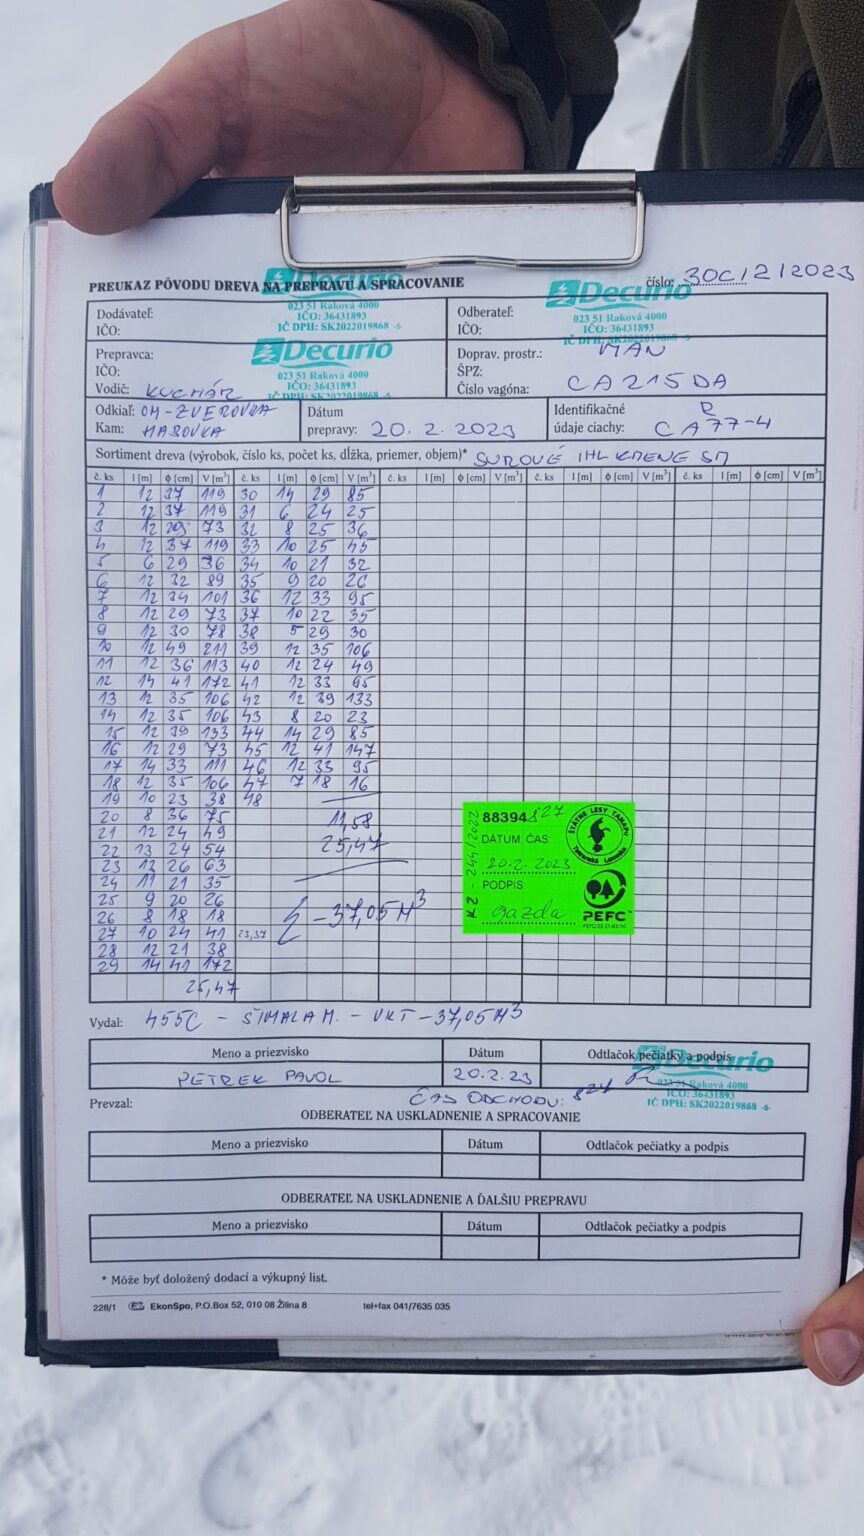 PREUKAZ PÔVODU DREVA NA PREPRAVU A SPRACOVANIE
číslo: 30C/2/2023
Decurio
023 51 Raková 4000
IČO: 36431893
IČ DPH: SK2022019868 -5-
Dodávateľ:
IČO:
Decurio
023 51 Raková 4000
IČO: 36431893
IČ DPH: SK2022019868 -5-
Odberateľ:
IČO:
Decurio
023 51 Raková 4000
IČO: 36431893
IČ DPH: SK2022019868 -5-
Prepravca:
IČO:
Vodič: KUCHÁR
Doprav. prostr.: MAN
ŠPZ:
Číslo vagóna: CA215DA
Odkiaľ: OM-ZVEROVKA
Kam: HABOVKA
Dátum
prepravy: 20. 2. 2023
Identifikačné
údaje ciachy: R
CA77-4
Sortiment dreva (výrobok, číslo ks, počet ks, dĺžka, priemer, objem)* SUROVÉ IHL KMENE SM
č. ks l [m] ϕ [cm] V [m³] č. ks l [m] ϕ [cm] V [m³] č. ks l [m] ϕ [cm] V [m³] č. ks l [m] ϕ [cm] V [m³] č. ks l [m] ϕ [cm] V [m³]
1 12 37 119 30 14 29 85
2 12 37 119 31 6 24 25
3 12 73 32 8 25 36
4 12 37 119 33 10 25 45
5 6 29 36 34 10 21 32
6 12 32 89 35 9 20 26
7 12 34 101 36 12 33 95
8 12 29 73 37 10 22 35
9 12 30 78 38 5 29 30
10 12 49 211 39 12 35 106
11 12 36 113 40 12 24 49
12 14 41 172 41 12 33 95
13 12 35 106 42 12 39 133
14 12 35 106 43 8 20 23
15 12 39 133 44 14 29 85
16 12 29 73 45 12 41 147
17 14 33 111 46 12 33 95
18 12 35 106 47 7 18 16
19 10 23 38 48
20 8 36 75 11,58
21 12 24 49 25,47
22 13 24 54
23 12 26 63
24 11 21 35
25 9 20 26
26 8 18 18 - 37,05 M³
27 10 24 41 23,37
28 12 21 38
29 14 41 172
25,47
KZ - 244/2022
88394 827
DÁTUM, ČAS:
20.2. 2023
PODPIS:
gazda
ŠTÁTNE LESY TANAPU
Tatranská Lomnica
PEFC
Vydal: 455C - ŠIMALA M. - VKT - 37,05 M³
Meno a priezvisko Dátum Odtlačok pečiatky a podpis
PETREK PAVOL 20.2.23
Decurio
023 51 Raková 4000
IČO: 36431893
IČ DPH: SK2022019868 -5-
Prevzal:
ČAS ODCHODU: 827
ODBERATEĽ NA USKLADNENIE A SPRACOVANIE
Meno a priezvisko Dátum Odtlačok pečiatky a podpis
ODBERATEĽ NA USKLADNENIE A ĎALŠIU PREPRAVU
Meno a priezvisko Dátum Odtlačok pečiatky a podpis
* Môže byť doložený dodací a výkupný list.
228/1 EkonSpo, P.O.Box 52, 010 08 Žilina 8 tel+fax 041/7635 035